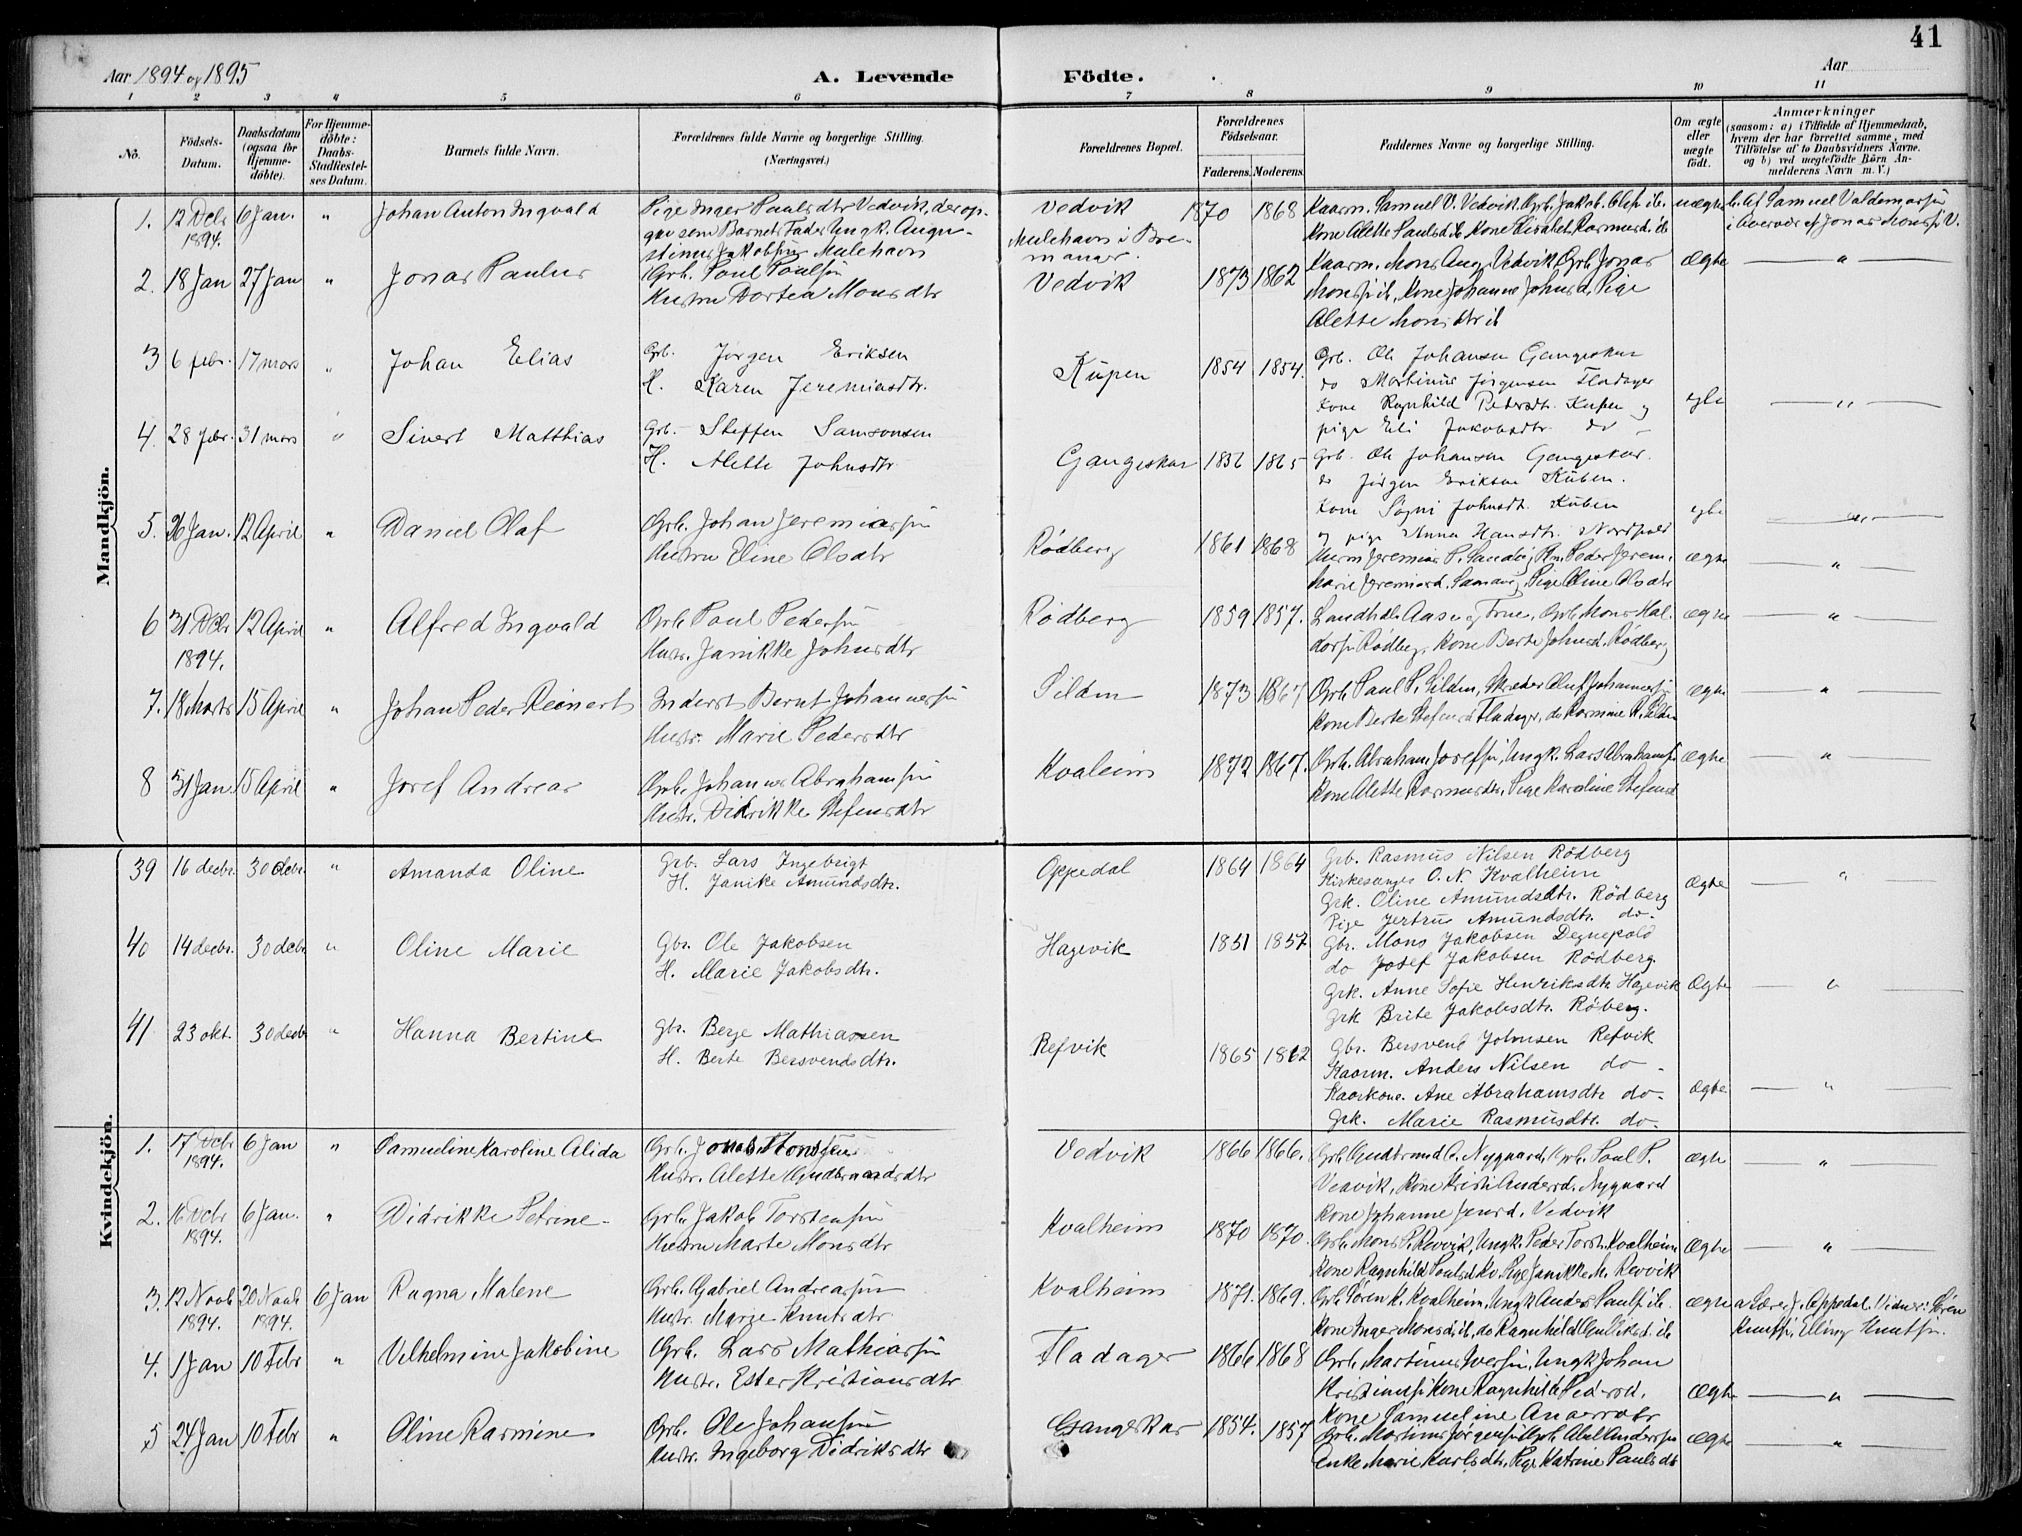 41
Aar 1894 og 1895
A. Levende
Födte.
Aar
1 2 3 4 5 6 7 8 9 10 11
No.
Födsels-
Datum.
Daabsdatum
(ogsaa for
Hjemme-
döbte).
For Hjemme-
döbte:
Daabs-
Stadfæstel-
ses Datum.
Barnets fulde Navn.
Forældrenes fulde Navne og borgerlige Stilling.
(Næringsvei.)
Forældrenes Bopæl.
Forældrenes
Födselsaar.
Faderens. Moderens.
Faddernes Navne og borgerlige Stilling.
Om ægte
eller
uægte
födt.
Anmærkninger
(saasom: a) i Tilfælde af Hjemmedaab,
hvem der har forrettet samme, med
Tilföielse af to Daabsvidners Navne.
og b) ved uægtefödte Börn An-
melderens Navn m. V.)
Mandkjön.
1. 12 Dcbr 6 Jan. " Johan Anton Ingvald
1894.
Pige Inger Paulsdtr Vedvik, der op-
gav som Barnets Fader Ungk. Augu-
stinus Jakobsen Mulehavn
Vedvik
Mulehavn i Bre-
manger.
1870 1868
Kaarm. Samuel V. Vedvik, Grb. Jakob Olsn ib.
Kone Alette Paulsd. ib. Kone Elisabet Rasmusd. ib
uægte
b. Af Samuel Valdemarsn
i Overvær af Jonas Monsn V.
2. 18 Jan 27 Jan " Jonas Paulus
Grb. Paul Paulsn
Hustru Dortea Monsdtr
Vedvik
1873 1862
Kaarm. Mons Aug. Vedvik, Grb. Jonas
Monsn ib, Kone Johanne Johnsd, Pige
Alette Monsdtr ib
Ægte "
3 6 febr. 17 mars " Johan Elias
Grb. Jørgen Eriksen
H. Karen Jeremiasdtr.
Kupen
1854 1854.
Grb. Ole Johansen Gangeskar
do Martinus Jørgensen Fladager
Kone Ragnhild Pedersdt. Kupen og
pige Eli Jakobsdtr. do
egte "
4. 28 febr. 31 mars " Sivert Matthias
Grb. Steffen Samsonsen
H. Alette Johnsdtr.
Gangeskar
1856 1865
Grb. Ole Johansen Gangeskar.
do Jørgen Eriksen Kuben.
Kone Søgni Johnsdt. Kuben
og pige Anna Hansdtr. Nordpold
egte "
5. 26 Jan. 12 April " Daniel Olaf
Grb. Johan Jeremiassn
Hustru Eline Olsdtr
Rødberg
1861 1868
Marie Jeremiasd. Sandvig, Pige Oline Olsdtr
ægte "
6 31 Dcbr 12 April " Alfred Ingvald
1894.
Grb Paul Pedersn
Hustr. Janikke Johnsdtr
Rødberg
1859 1857.
Landhdl. Aasen, Torne, Grb. Mons Hal-
dorsn Rødberg, Kone Berte Johnsd. Rødberg
ægte "
7. 18 Marts 15 April " Johan Peder Reinert
Inderst Bernt Johannessn
Hustr. Marie Pedersdtr
Silden
1873 1867
Grb Paul P. Silden, Skræder Oluf Johannessn
Kone Berte Stefensd Fladager, do Rasmine R. Silden
ægte "
8 31 Jan. 15 April " Josef Andreas
Grb. Johannes Abrahamsn
Hustr. Didrikke Stefensdtr
Kvaleim
1872 1867.
Grb. Abraham Josefsn, Ungk. Lars Abrahamsn
Kone Alette Rasmusdtr. Pige Karoline Stefensd
Ægte "
Kvindekjön.
39 16 decbr. 30 decbr. " Amanda Oline
Grb. Lars Ingebrigt
H. Janike Amundsdtr.
Oppedal
1864 1864
Grb. Rasmus Nilsen Rödberg
Kirkesanger O. N. Kvalheim
Grk. Oline Amundsdtr. Rödberg
Pige Jertrus Amundsdtr. do-
Ægte "
40 14 decbr. 30 decbr. " Oline Marie
Gbr. Ole Jakobsen
H. Marie Jakobsdtr.
Hagevik
1851 1857
Gbr. Mons Jakobsen Degnepold
do Josef Jakobsen Rödberg
Grk. Anne Sofie Henriksdtr Hagevik
Grk Brite Jakobsdtr. Röberg.
Ægte "
41 23 okt. 30 decbr " Hanna Bertine
Gbr. Berge Mathiassen
H. Berte Bersvendsdtr.
Refvik
1865 1862
Gbr. Bersvend Johnsen Refvik
Kaarm. Anders Nilsen do-
Kaarkone. Ane Abrahamsdtr do-
Grk. Marie Rasmusdtr. do-
Ægte "
1. 17 Dcbr 6 Jan " Samueline Karoline Alida
1894.
Grb. Jonas Monssen
Hustr. Alette Gudbrandsdtr
Vedvik
1866 1866.
Grb Gudbrand A. Nygaard, Grb. Paul P.
Vedvik, Kone Kristi Andersd. Nygaard
Kone Johanne Jensd. Vedvik
ægte "
2. 16 Dcbr 6 Jan. " Didrikke Petrine
1894.
Grb. Jakob Torstensn
Hustru Marte Monsdtr
Kvalheim
1870 1870.
Grb. Mons P. Revvik, Ungk. Peder Torst. Kvalheim
Kone Ragnhild Paulsd Kv. Pige Janikke M. Revvik
Ægte "
3. 12 Novb. 20 Novb. 6 Jan Ragna Malene
1894. 1894.
Grb. Gabriel Andreassn
Hustr. Marie Knutsdtr
Kvalheim
1871. 1869.
Grb Søren K. Kvalheim, Ungk Anders Paulsn ib.
Kone Inger Monsd. ib, do Ragnhild Gulliksd. ib
ægte
a Lærer J. Oppedal. Vidner: Søren
Knutsn, Elling Knutsn.
4. 1 Jan 10 Febr " Vilhelmine Jakobine
Grb. Lars Mathiassn
Hustr. Ester Kristiansdtr
Fladager
1866 1868
Grb. Martinus Iversn, Ungk Johan
Kristiansn Kone Ragnhild Pedersd.
Kone Samueline Andersdtr
Ægte "
5 24 Jan 10 Febr " Oline Rasmine
Grb. Ole Johansn
Hustr. Ingeborg Didriksdtr
Gangeskar
1854. 1857
Grb. Martinus Jørgensn Grb. Abel Anderssn
Enke Marie Karlsdtr, Pige Katrine Paulsdt
Ægte "